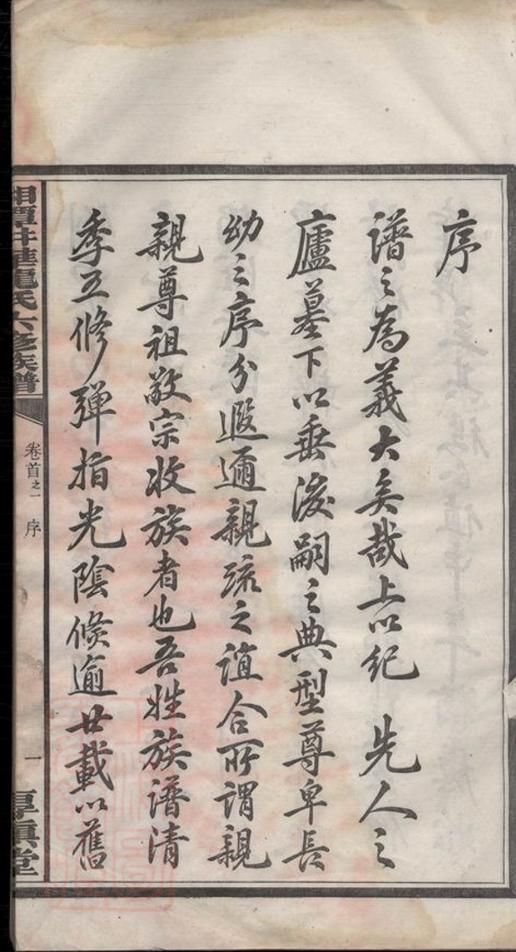 序
譜之為義大矣哉上以紀 先人之
廬墓下以垂後嗣之典型尊卑長
幼之序分遐邇親疏之誼合所謂親
親尊祖敬宗收族者也吾姓族譜清
季五修彈指光陰倏逾廿載以舊
湘潭井華龍氏六修族譜
卷首之一 序
一
厚真堂